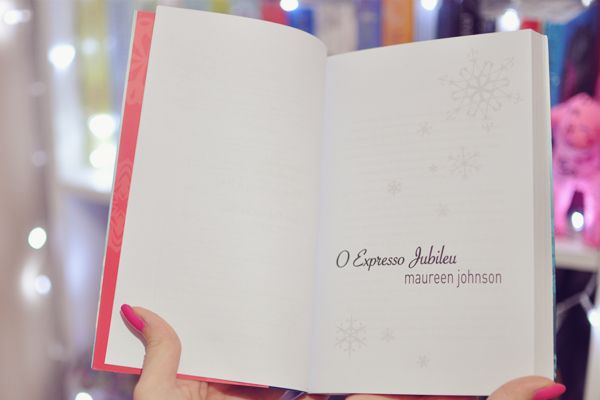 O Expresso Jubileu
maureen johnson